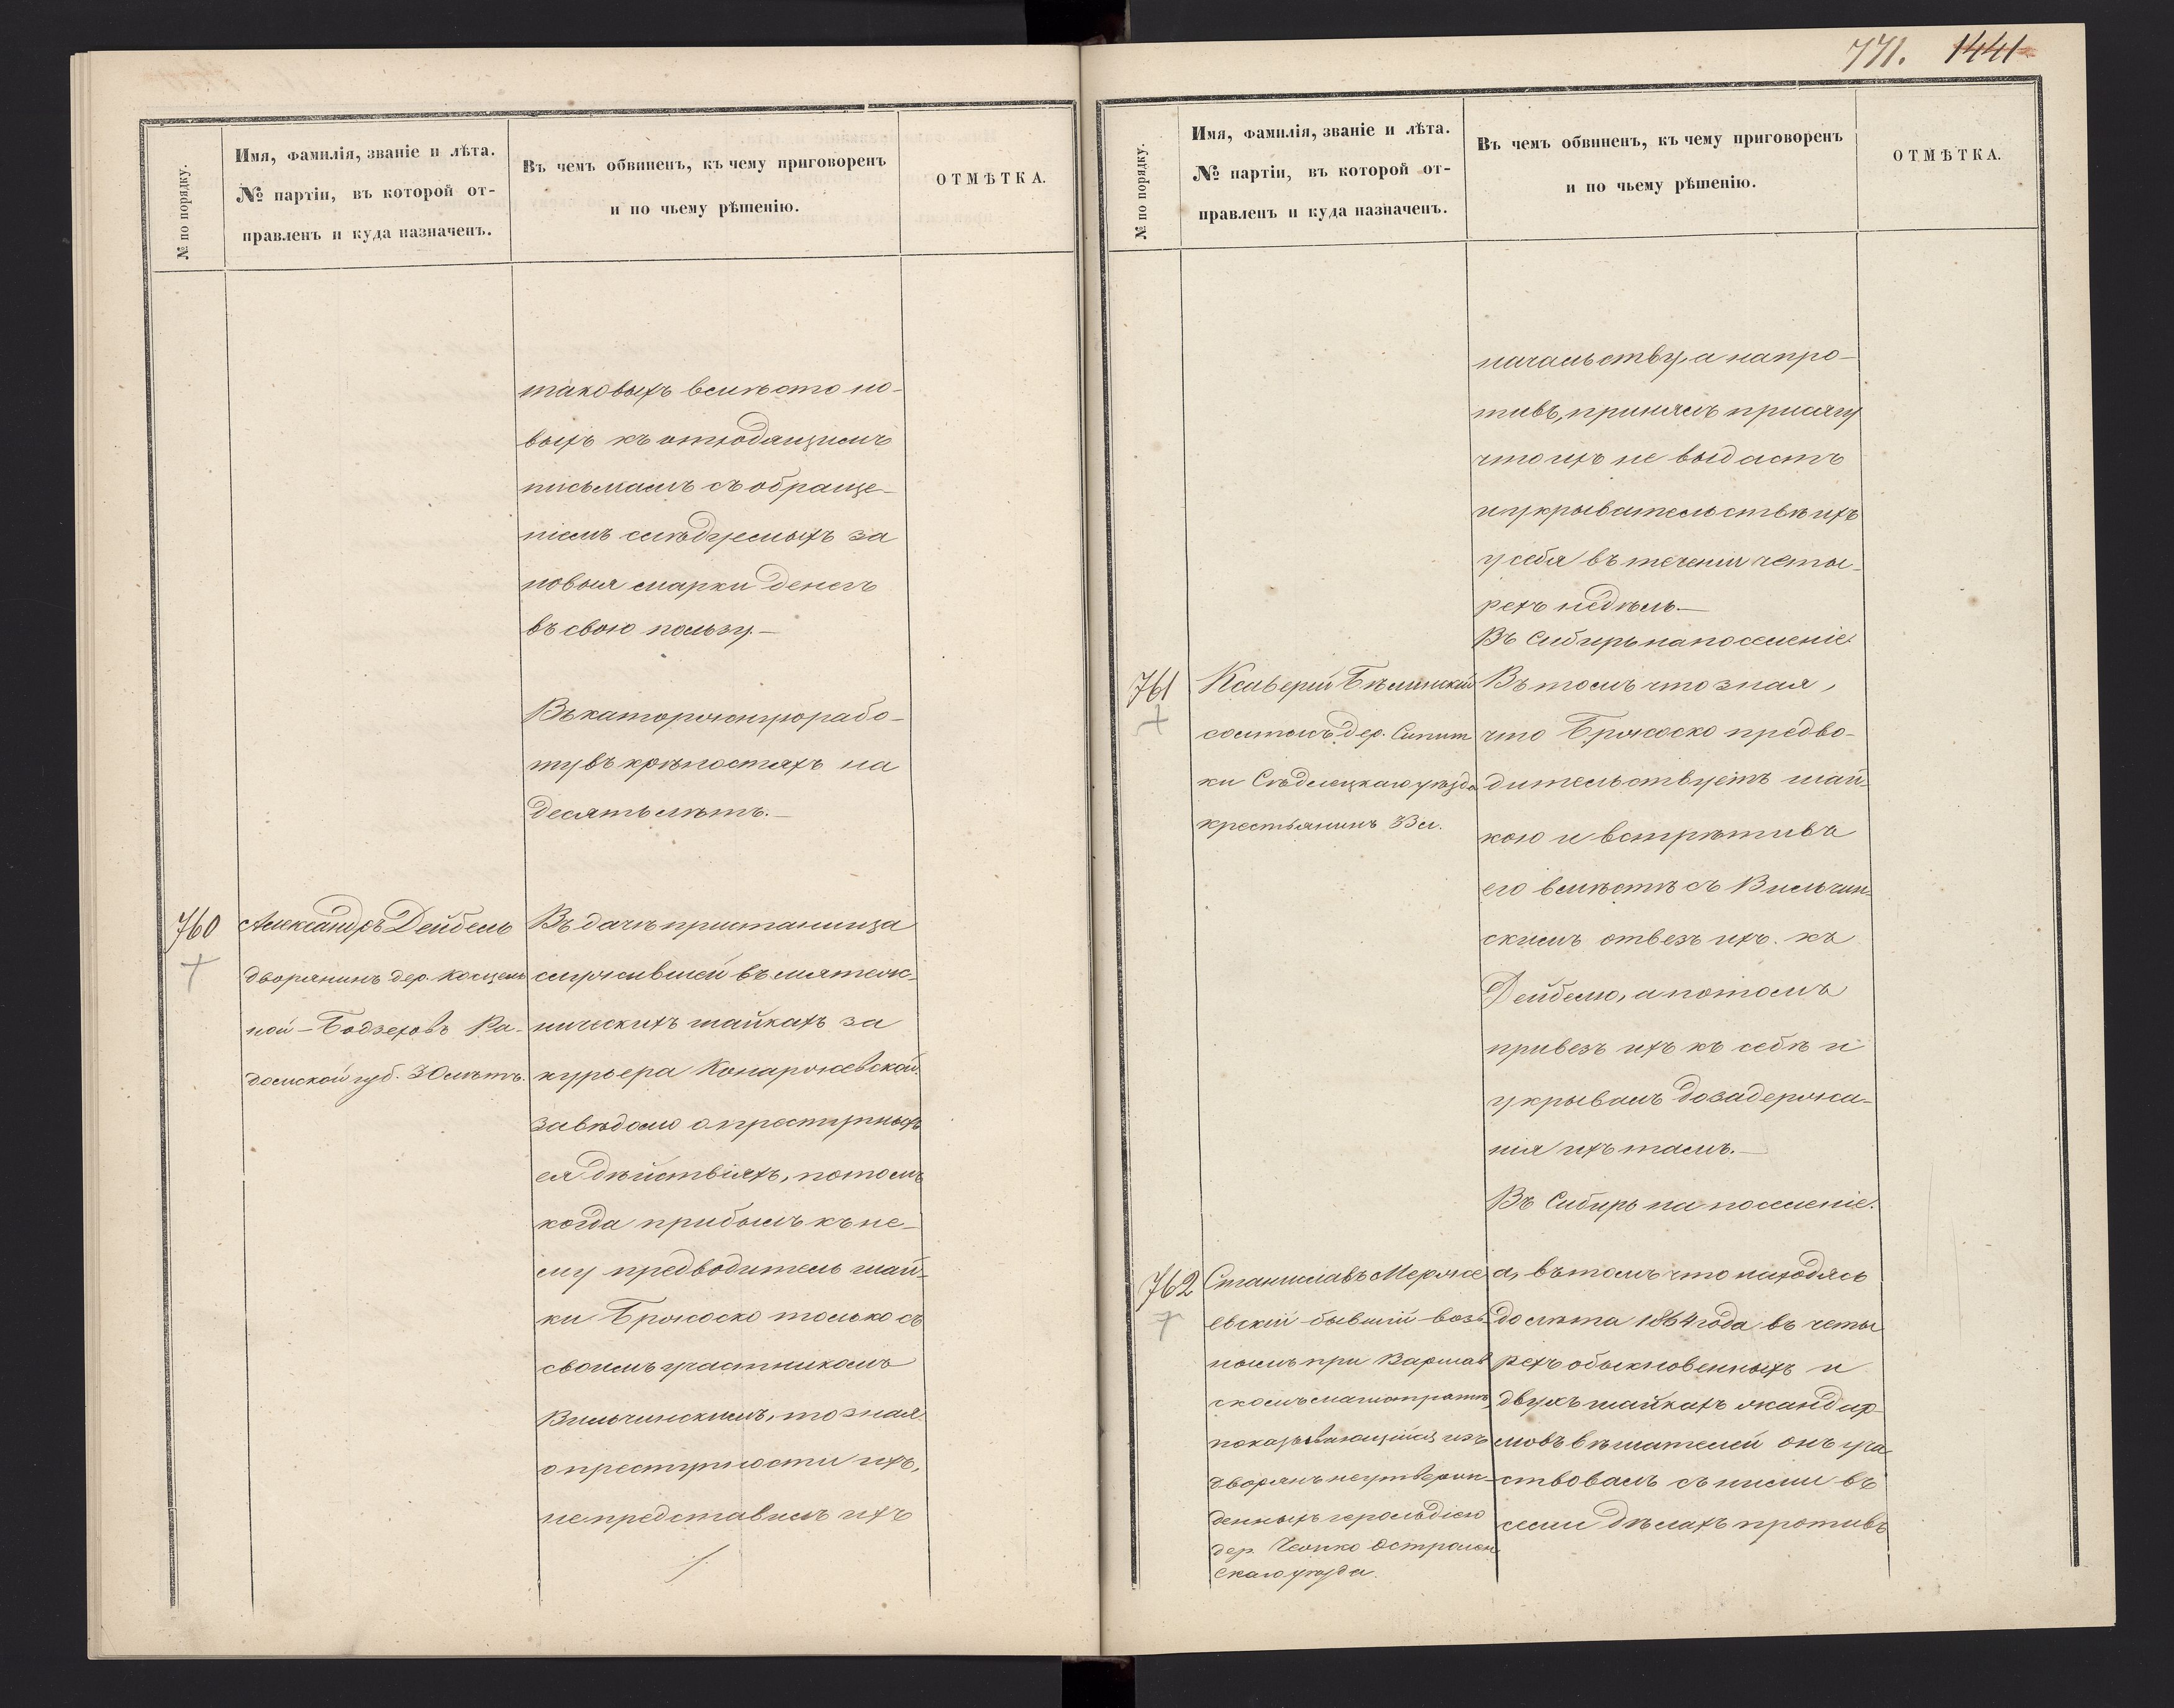 771. 1441
№ по порядку.
Имя, фамилія, званіе и лѣта.
№ партіи, въ которой от-
правленъ и куда назначенъ.
Въ чемъ обвиненъ, къ чему приговоренъ
и по чьему рѣшенію.
ОТМѢТКА.
таковыхъ вмѣсто но-
выхъ къ отходящимъ
письмамъ съ обраще-
ніемъ слѣдуемыхъ за
новыя марки денегъ
въ свою пользу.—
Въ каторжную рабо-
ту въ крѣпостяхъ на
десять лѣтъ.—
760
Александръ Дейбель
дворянинъ дер. Косцель
ной-Бодзеховъ Ра-
домской губ. 30 лѣтъ.
Въ дачѣ пристанища
служившей въ мятеж-
ническихъ шайкахъ за
курьера Конаржевской.
завѣдомо о преступныхъ
ея дѣйствіяхъ, потомъ
когда прибылъ къ не-
му предводитель шай-
ки Бржоско только съ
своимъ участникомъ
Вильчинскимъ, то зная
о преступности ихъ,
не представилъ ихъ
№ по порядку.
Имя, фамилія, званіе и лѣта.
№ партіи, въ которой от-
правленъ и куда назначенъ.
Въ чемъ обвиненъ, къ чему приговоренъ
и по чьему рѣшенію.
ОТМѢТКА.
начальству, а напро-
тивъ, принялъ присягу
что ихъ не выдастъ
и укрывательствѣ ихъ
у себя въ теченіи четы-
рехъ недѣль.—
Въ Сибирь на поселеніе.
761
Ксаверій Бѣлинскій
солтысъ дер. Сипит
ки Сѣдлецкаго уѣзда
крестьянинъ 33 л.
Въ томъ что зная,
что Бржоско предво-
дительствуетъ шай-
кою и встрѣтивъ
его вмѣстѣ съ Вильчин-
скимъ отвезъ ихъ къ
Дейбелю, а потомъ
привезъ ихъ къ себѣ и
укрывалъ до задержа-
нія ихъ тамъ.—
Въ Сибирь на поселеніе.
762
Станиславъ Мерже
евскій бывшій воз-
нымъ при Варшав
скомъ магистратѣ,
показывающійся изъ
дворянъ неутверж-
денныхъ герольдіею
дер. Остролен
скаго уѣзда.
а, въ томъ что находясь
до лѣта 1864 года въ четы
рехъ обыкновенныхъ и
двухъ шайкахъ жандар-
мовъ вѣшателей онъ уча
ствовалъ съ ними въ
семи дѣлахъ противъ